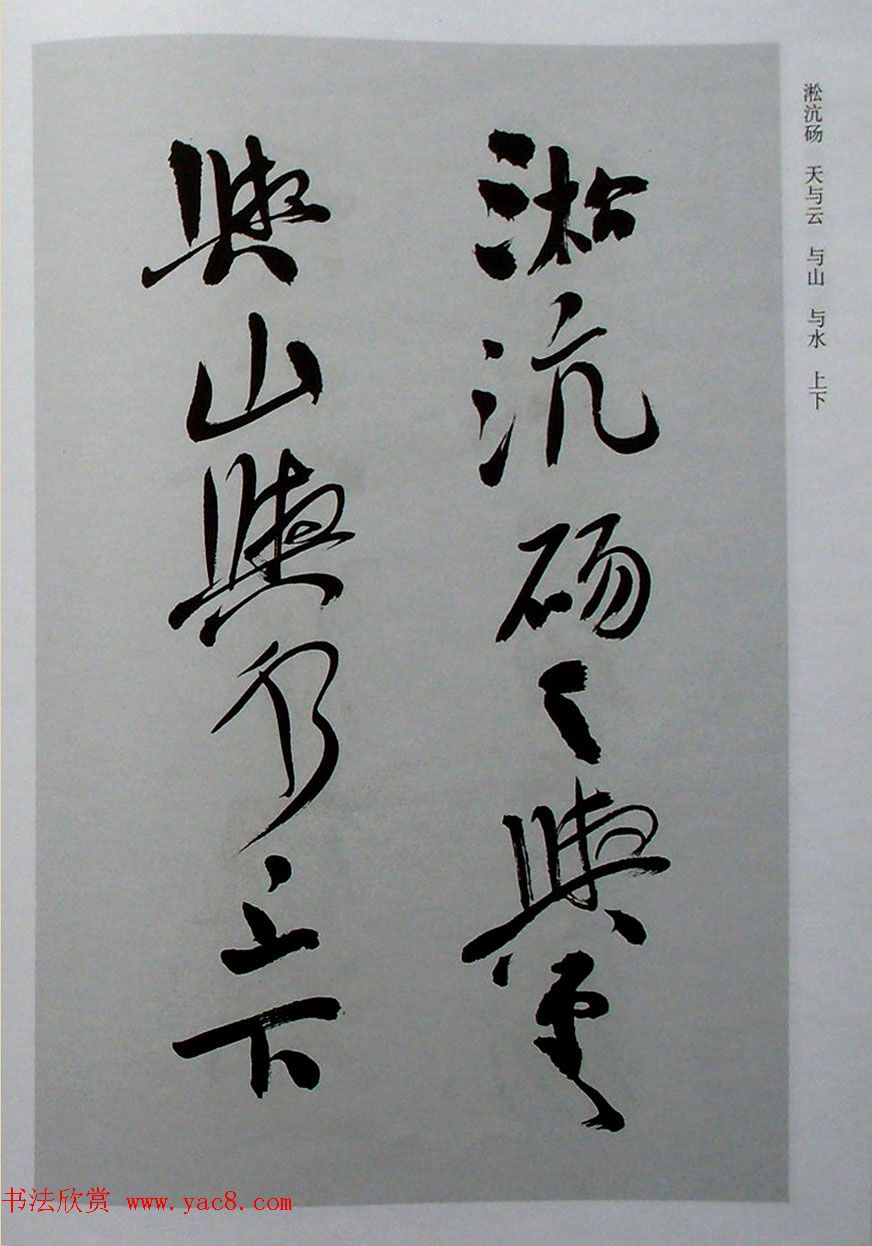 淞沆砀天與雲
與山與水上下
淞沆砀 天与云 与山 与水 上下
书法欣赏 www.yac8.com